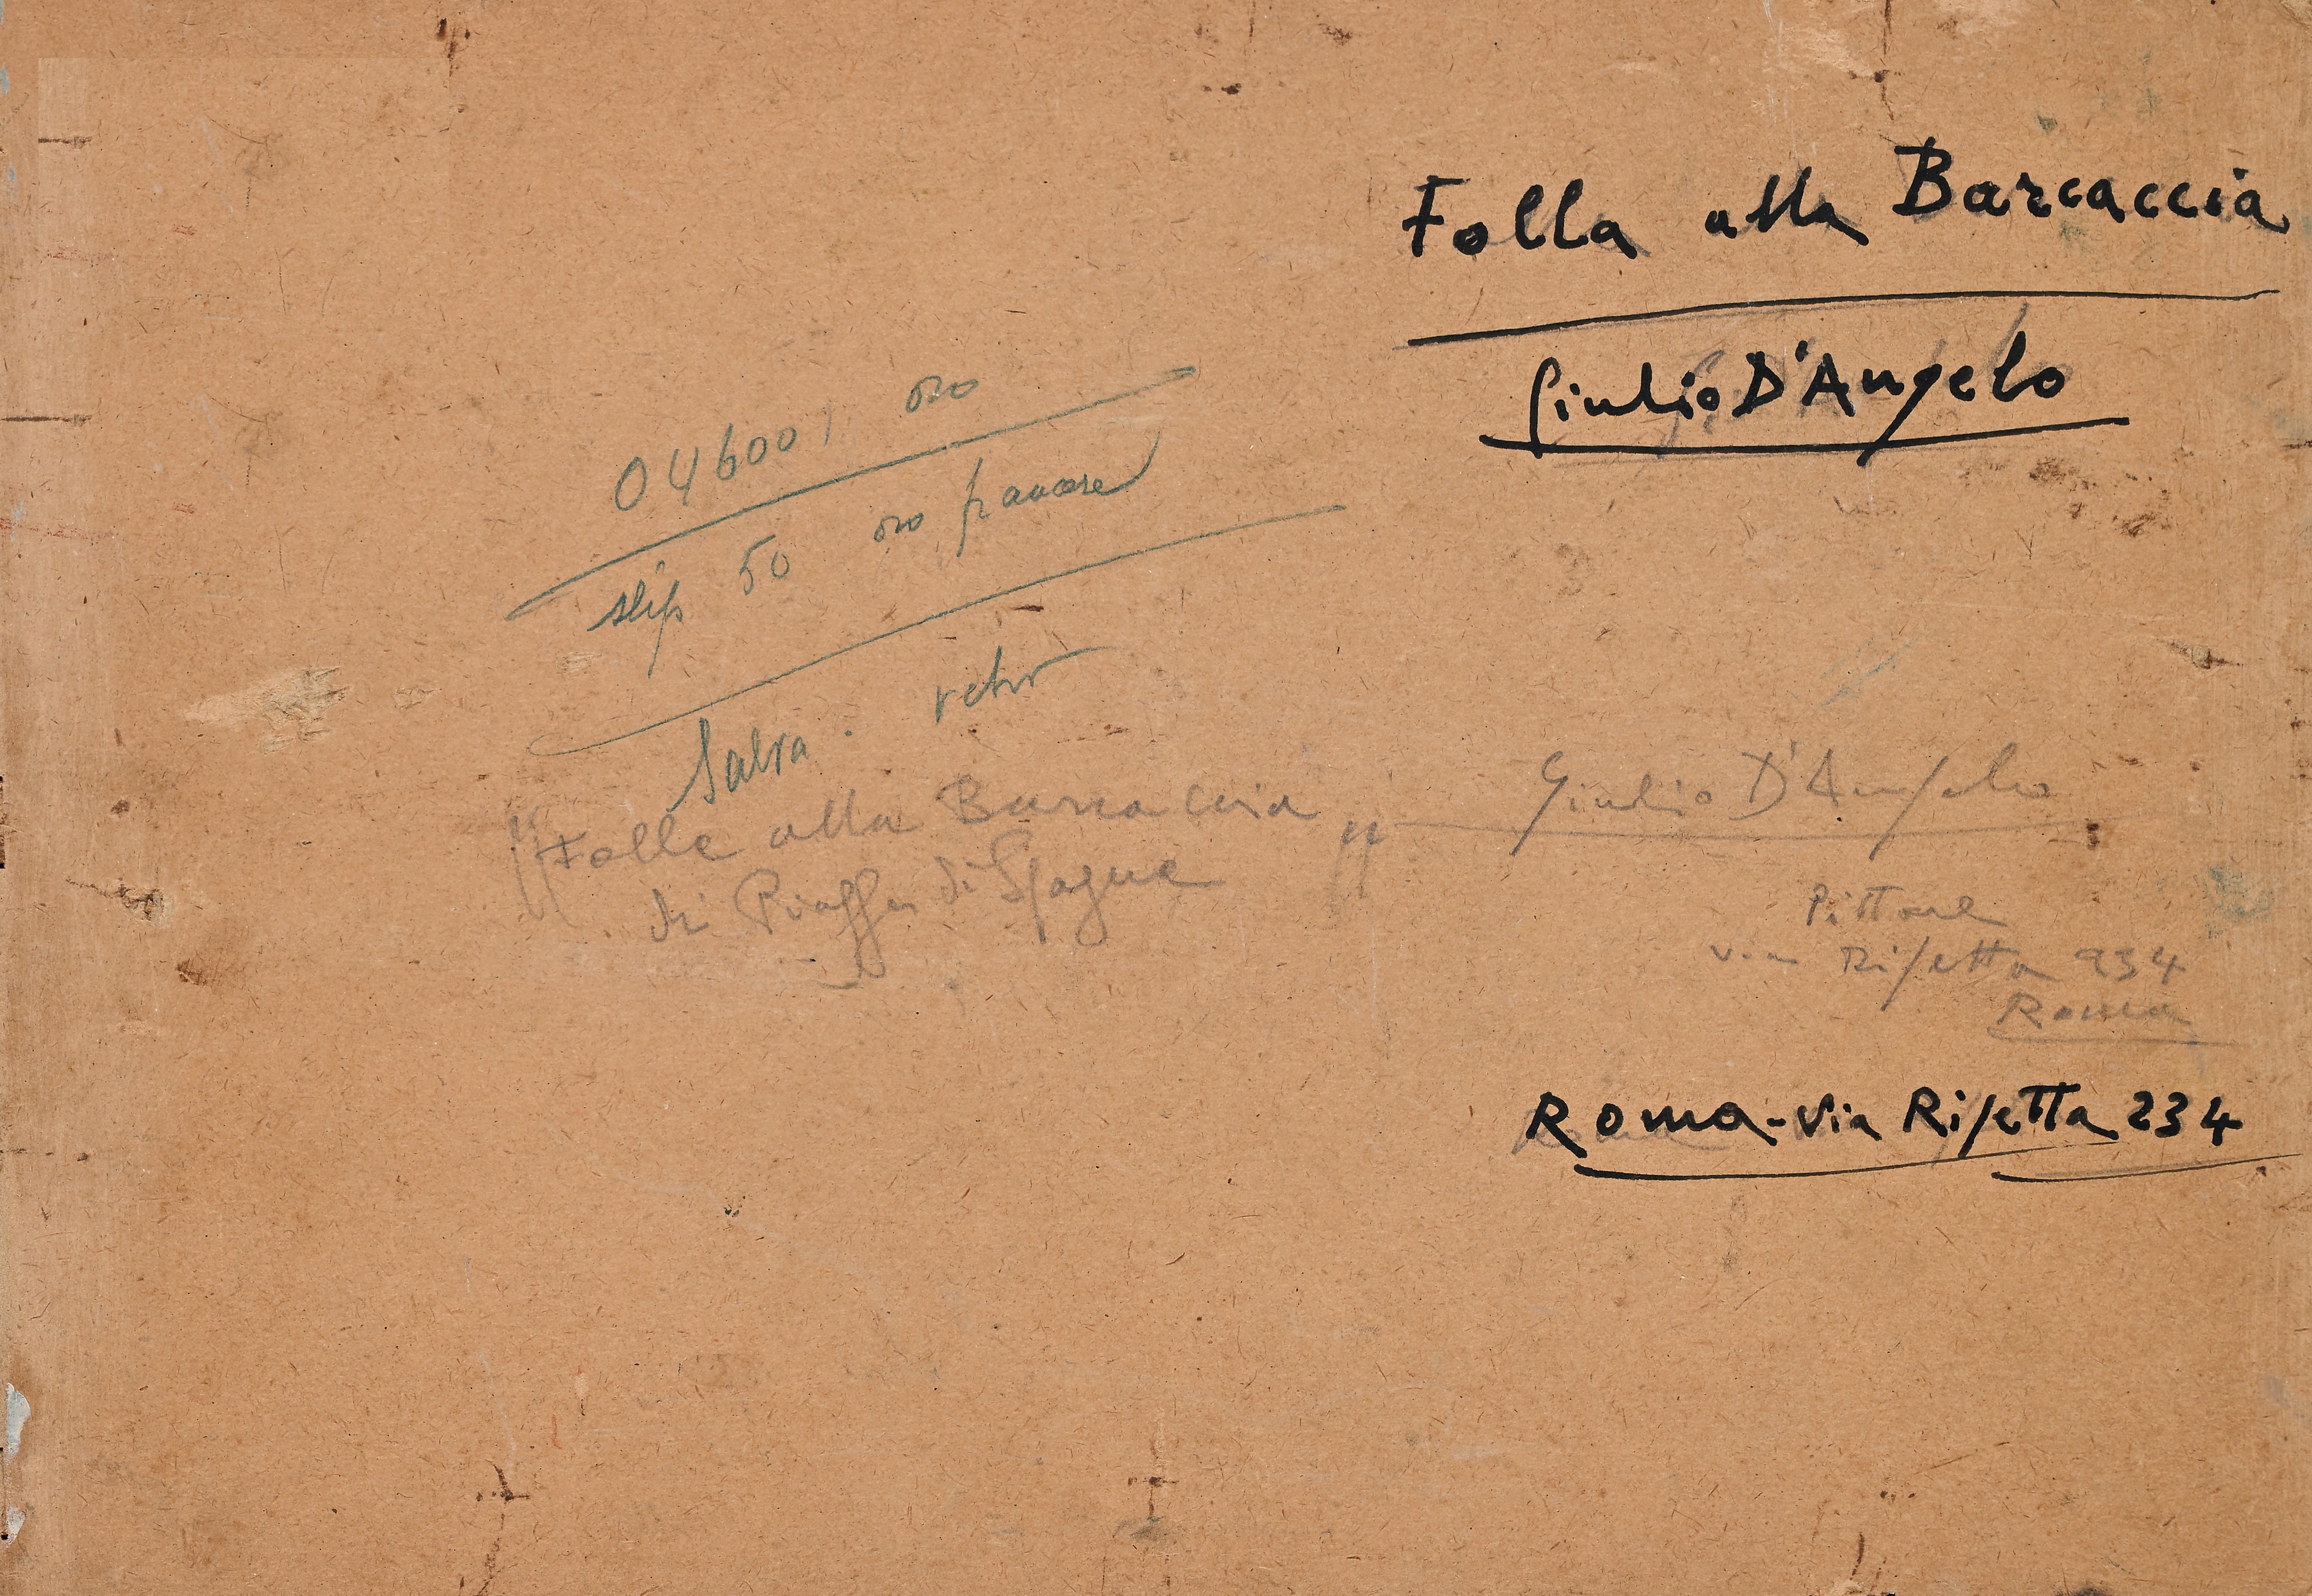 Folla alla Barcaccia
Giulio D'Angelo
04600 oro
slip 50 oro
Salva. vetro
"Folla alla Barcaccia"
di Piazza di Spagna
Giulio D'Angelo
Pittore
via Ripetta 234
Roma
Roma - Via Ripetta 234